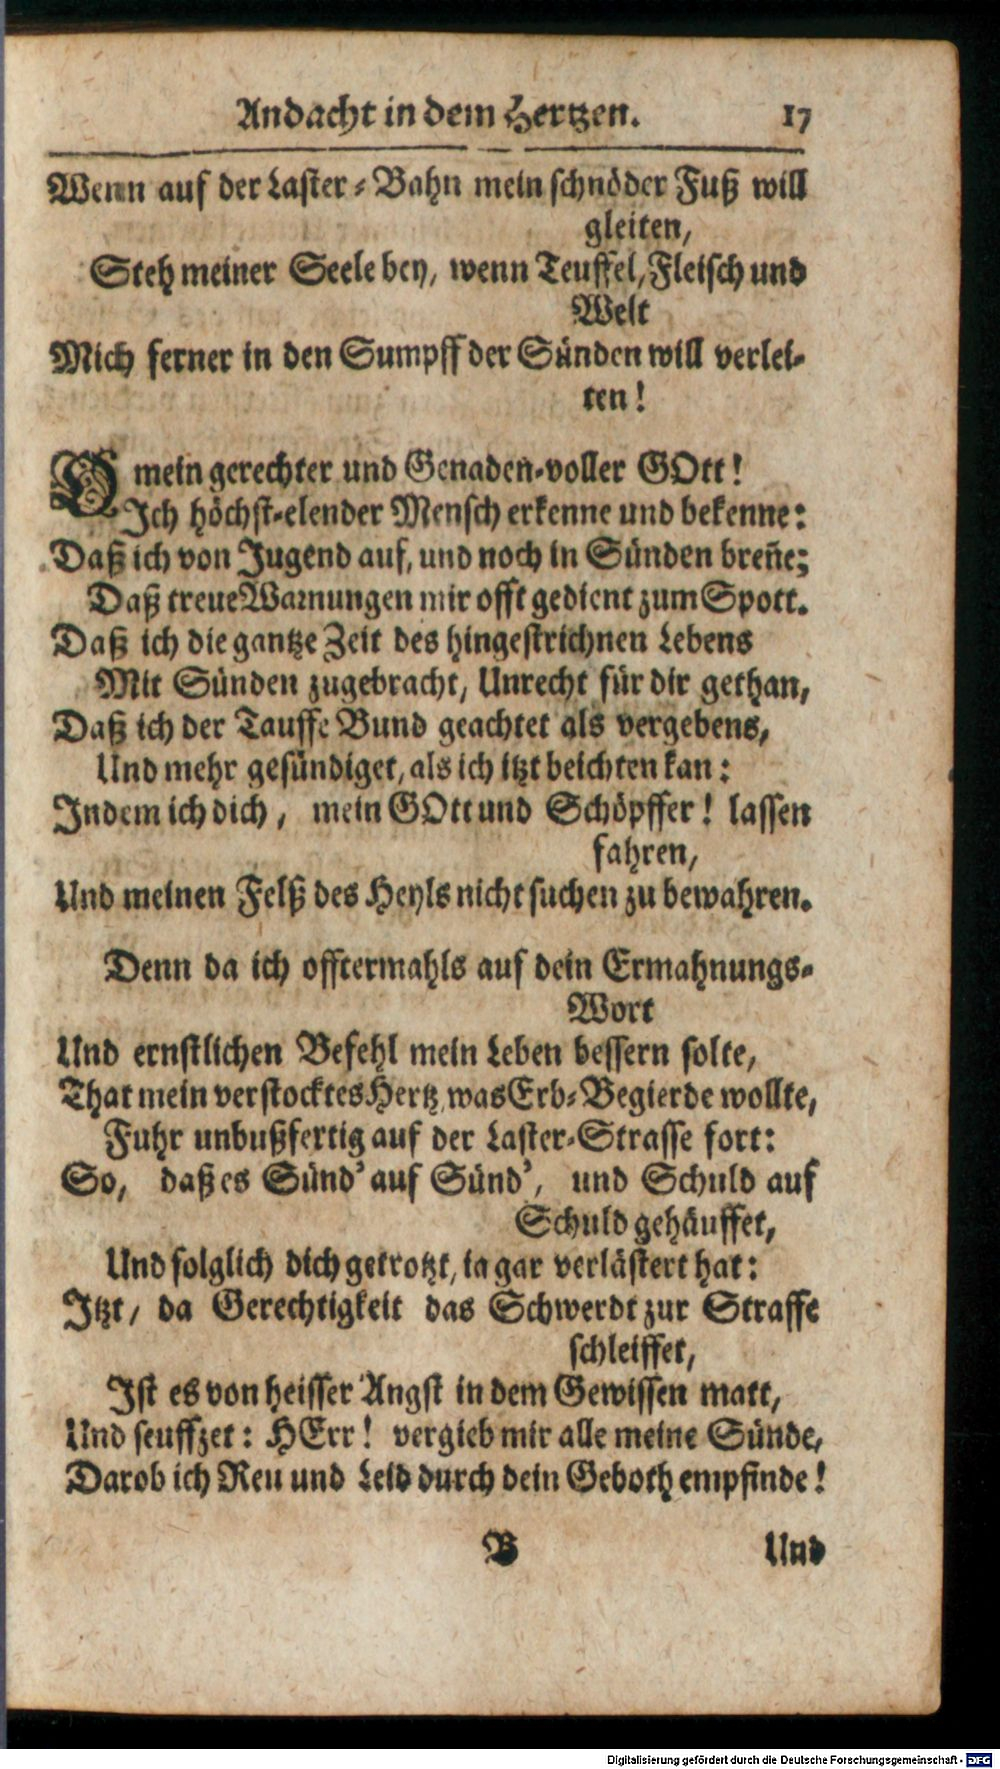 Andacht in dem Hertzen. 17
Wenn auf der Laster-Bahn mein schnöder Fuß will
gleiten,
Steh meiner Seele bey, wenn Teuffel, Fleisch und
Welt
Mich ferner in den Sumpff der Sünden will verlei-
ten!
O mein gerechter und Genaden-voller GOtt!
Ich höchst-elender Mensch erkenne und bekenne:
Daß ich von Jugend auf, und noch in Sünden breñe;
Daß treue Warnungen mir offt gedient zum Spott.
Daß ich die gantze Zeit des hingestrichnen Lebens
Mit Sünden zugebracht, Unrecht für dir gethan,
Daß ich der Tauffe Bund geachtet als vergebens,
Und mehr gesündiget, als ich itzt beichten kan:
Indem ich dich, mein GOtt und Schöpffer! lassen
fahren,
Und meinen Felß des Heyls nicht suchen zu bewahren.
Denn da ich offtermahls auf dein Ermahnungs-
Wort
Und ernstlichen Befehl mein Leben bessern solte,
That mein verstocktes Hertz, was Erb-Begierde wollte,
Fuhr unbußfertig auf der Laster-Strasse fort:
So, daß es Sünd' auf Sünd', und Schuld auf
Schuld gehäuffet,
Und folglich dich getrotzt, ja gar verlästert hat:
Itzt, da Gerechtigkeit das Schwerdt zur Straffe
schleiffet,
Ist es von heisser Angst in dem Gewissen matt,
Und seuffzet: HErr! vergieb mir alle meine Sünde,
Darob ich Reu und Leid durch dein Geboth empfinde!
B Und
Digitalisierung gefördert durch die Deutsche Forschungsgemeinschaft - DFG